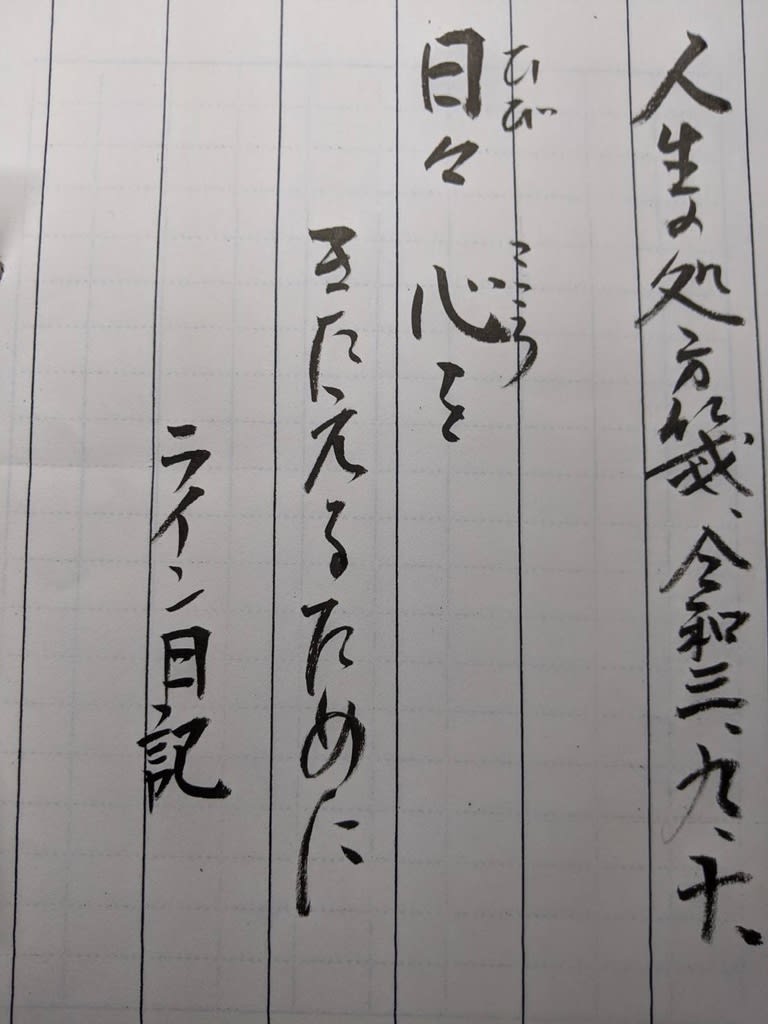 人生の処方箋、令和三、九、十、
ひび こころ
日々 心を
きたえるために
ライン日記